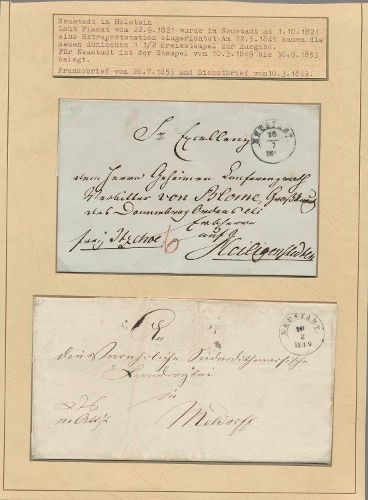 Neustadt in Holstein
Laut Placat vom 22.9.1821 wurde in Neustadt ab 1.10.1821
eine Extrapoststation eingerichtet. Am 22.5.1845 kamen die
neuen dänischen 1 1/2 Kreisstempel zur Ausgabe.
Für Neustadt ist der Stempel von 10.3.1849 bis 30.9.1853
belegt.
Frankobrief von 26.7.1853 und Dienstbrief von 10.3.1849.
Sr Excellenz
NEUSTADT
dem Herrn Geheimen Conferenzrath
Verbitter von Blome, Großkreuz
des Dannebrog Ordens
Exherrn
auf
frey Itzehoe
6
Heiligenstedten
An
NEUSTADT
10
1849
die Verehrliche Süderdithmarsische
Landvogtei
in
Meldorff
DS